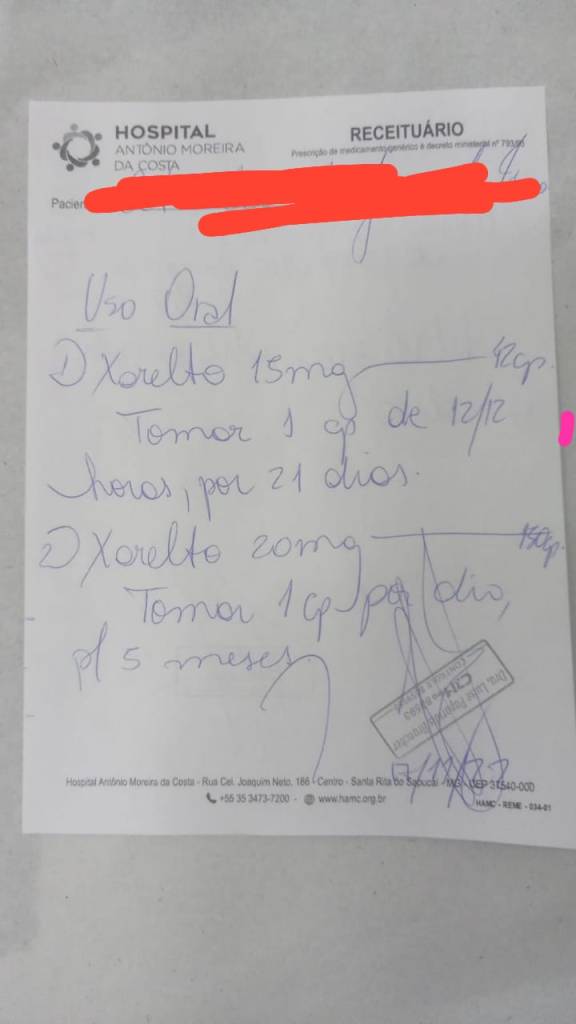 HOSPITAL
ANTÔNIO MOREIRA
DA COSTA
RECEITUÁRIO
Prescrição de medicamento genérico e decreto ministerial nº 793/93
Uso Oral
1) Xarelto 15mg 42cp.
Tomar 1 cp de 12/12
horas, por 21 dias.
2) Xarelto 20mg 150cp.
Tomar 1 cp por dia,
p/ 5 meses.
Hospital Antônio Moreira da Costa - Rua Cel. Joaquim Neto, 166 - Centro - Santa Rita do Sapucaí - MG - CEP 37540-000
+55 35 3473-7200 - www.hamc.org.br
HAMC - REME - 034-01